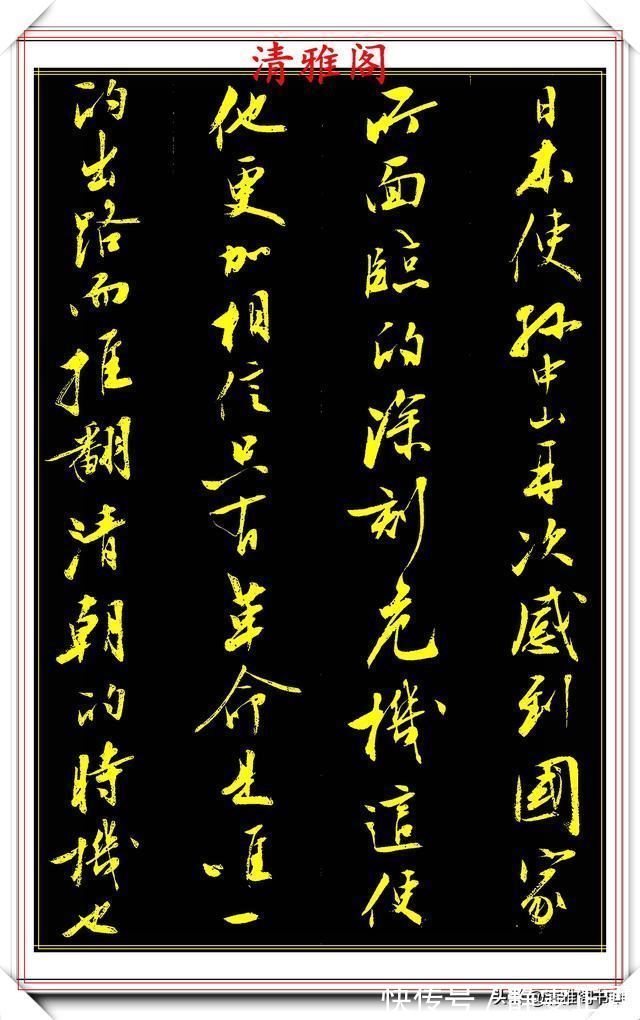 清雅阁
日本使孙中山再次感到國家
所面臨的深刻危機這使
他更加相信只有革命是唯一
的出路而推翻清朝的時機也
快传号